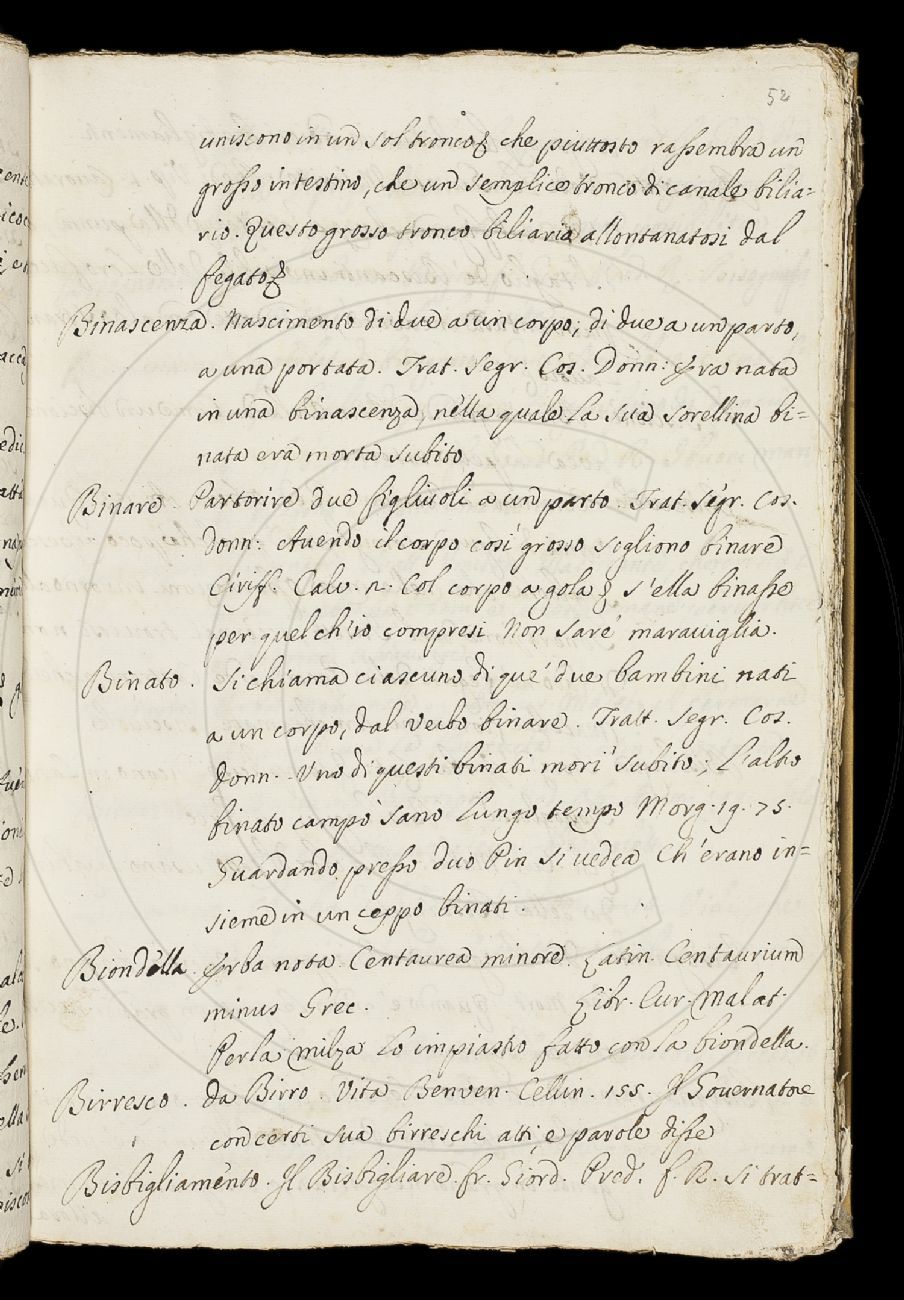 52
uniscono in un sol tronco, che piuttosto rassembra un
grosso intestino, che un semplice tronco di canale bilia=
rio. Questo grosso tronco biliario allontanatosi dal
fegato
Binascenza. Nascimento di due a un corpo; di due a un parto,
a una portata. Trat. Segr. Cos. Donn: Era nata
in una binascenza, nella quale la sua sorellina bi=
nata era morta subito
Binare. Partorire due figliuoli a un parto. Trat. Segr. Cos.
donn: Avendo il corpo così grosso sogliono binare
Ciriff. Calv. n. Col corpo a gola s'ella binasse
per quel ch'io compresi Non saré maraviglia.
Binato. Si chiama ciascuno di qué due bambini nati
a un corpo, dal verbo binare. Tratt. Segr. Cos.
donn. Uno di questi binati morì subito; L'altro
binato campò sano lungo tempo Morg. 19. 75.
Guardando presso duo Pin si vedea Ch'erano in=
sieme in un ceppo binati.
Biondella. Erba nota Centaurea minore. Latin. Centaurium
minus Grec. Libr. Cur. Malat.
Per la milza lo impiastro fatto con la biondella.
Birresco. da Birro. Vita Benven. Cellin. 155. Il Governatore
con certi sua birreschi atti, e parole disse
Bisbigliamento. Il Bisbigliare. fr. Giord. Pred. f. R. Si trat=